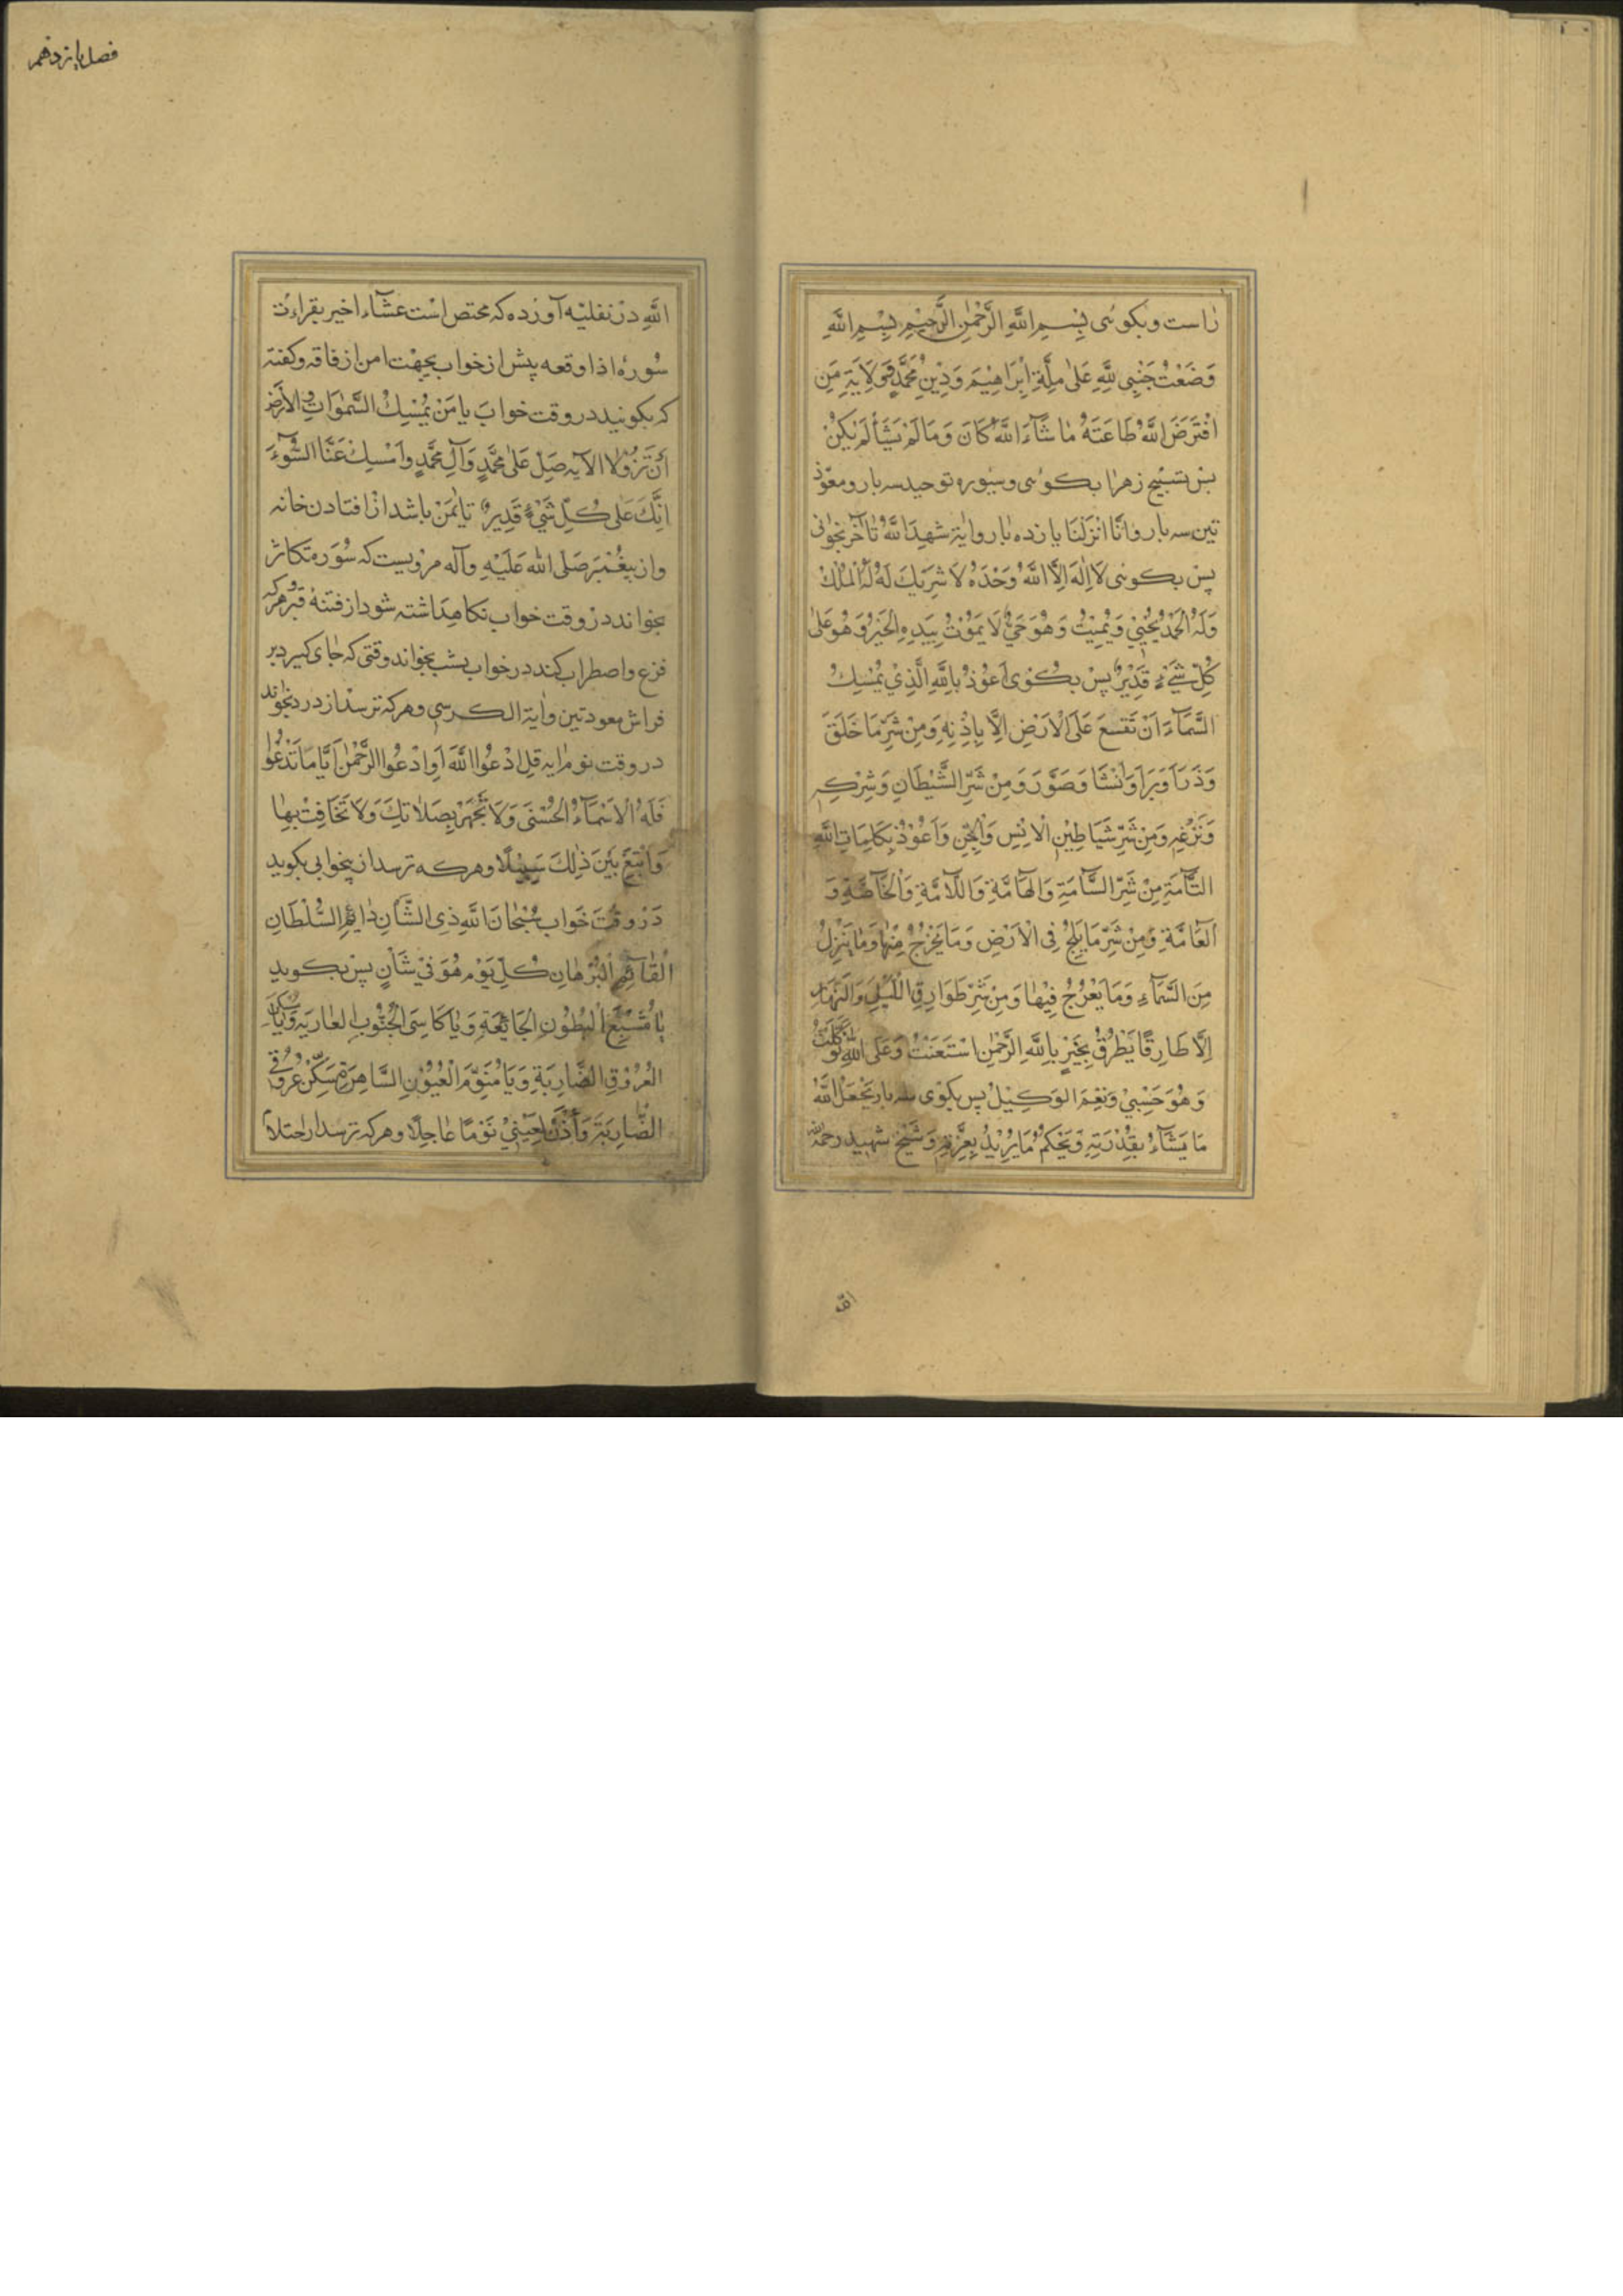 راست وبکوئی بِسْمِ اللَّهِ الرَّحْمٰنِ الرَّحِيمِ بِسْمِ اللَّهِ
وَضَعْتُ جَنْبِی لِلَّهِ عَلٰی مِلَّةِ اِبْرَاهِيْمَ وَدِيْنِ مُحَمَّدٍ وَوَلَايَةِ مَنِ
افْتَرَضَ اللَّهُ طَاعَتَهُ مٰا شَآءَ اللَّهُ كَانَ وَمَا لَمْ يَشَأْ لَمْ يَكُنْ
پس تسبیح زهرا بکوئی وسوره توحید سه بار ومعوّذ
تین سه بار وانّا انْزَلْنَا یازده بار وایة شَهِدَ اللَّهُ تا آخر بخوانی
پس بکوئی لَا اِلٰهَ اِلَّا اللَّهُ وَحْدَهُ لَا شَرِيْكَ لَهُ لَهُ الْمُلْكُ
وَلَهُ الْحَمْدُ يُحْيِيْ وَيُمِيْتُ وَهُوَ حَيٌّ لَا يَمُوْتُ بِيَدِهِ الْخَيْرُ وَهُوَ عَلٰی
كُلِّ شَيْءٍ قَدِيْرٌ پس بکوی اَعُوْذُ بِاللَّهِ الَّذِيْ يُمْسِكُ
السَّمَآءَ اَنْ تَقَعَ عَلَی الْاَرْضِ اِلَّا بِاِذْنِهِ وَمِنْ شَرِّ مَا خَلَقَ
وَذَرَاَ وَبَرَاَ وَاَنْشَا وَصَوَّرَ وَمِنْ شَرِّ الشَّيْطَانِ وَشِرْكِهِ
وَنَزْغِهِ وَمِنْ شَرِّ شَيَاطِيْنِ الْاِنْسِ وَالْجِنِّ وَاَعُوْذُ بِكَلِمَاتِ اللَّهِ
التَّآمَّةِ مِنْ شَرِّ السَّآمَّةِ وَالْهَآمَّةِ وَاللَّآمَّةِ وَالْخَآصَّةِ وَ
الْعَآمَّةِ وَمِنْ شَرِّ مَا يَلِجُ فِی الْاَرْضِ وَمَا يَخْرُجُ مِنْهَا وَمَا يَنْزِلُ
مِنَ السَّمَآءِ وَمَا يَعْرُجُ فِيْهَا وَمِنْ شَرِّ طَوَارِقِ اللَّيْلِ وَالنَّهَارِ
اِلَّا طَارِقًا يَطْرُقُ بِخَيْرٍ بِاللَّهِ الرَّحْمٰنِ اسْتَعَنْتُ وَعَلَی اللَّهِ تَوَكَّلْتُ
وَهُوَ حَسْبِيْ وَنِعْمَ الْوَكِيْلُ پس بکوی سه بار يَفْعَلُ اللَّهُ
مَا يَشَآءُ بِقُدْرَتِهِ وَيَحْكُمُ مَا يُرِيْدُ بِعِزَّتِهِ وَشيخ شهید رحمه
فصل پانزدهم
اللَّهِ در نفلیّه آورده که مختص است عشاء اخیر بقراءت
سورهٔ اذا وقعه پیش از خواب بجهت امن از فاقه وکفته
که بکوئید در وقت خواب يا مَنْ يُمْسِكُ السَّمٰوَاتِ وَالْاَرْضَ
اَنْ تَزُوْلَا الآیه صَلِّ عَلٰی مُحَمَّدٍ وَآلِ مُحَمَّدٍ وَاَمْسِكْ عَنَّا السُّوْءَ
اِنَّكَ عَلٰی كُلِّ شَيْءٍ قَدِيْرٌ تا ایمن باشد از افتادن خانه
واز پیغمبر صَلَّی اللّٰه عَلَيْهِ وآله مرویست که سُوره تکاثر
بخواند در وقت خواب نکاهداشته شود از فتنهٔ قبر وهرکه
فزع واضطراب کند در خواب بشب بخواند وقتی که جای کیرد بر
فراش معوذتین وایة الکرسی وهرکه ترسد از دزد بخواند
در وقت نوم ایه قُلِ ادْعُوا اللَّهَ اَوِ ادْعُوا الرَّحْمٰنَ اَيًّا مَا تَدْعُوا
فَلَهُ الْاَسْمَآءُ الْحُسْنَی وَلَا تَجْهَرْ بِصَلَاتِكَ وَلَا تُخَافِتْ بِهَا
وَابْتَغِ بَيْنَ ذٰلِكَ سَبِيْلًا وهرکه ترسد از بیخوابی بکوید
در وقت خواب سُبْحَانَ اللَّهِ ذِی الشَّانِ دَائِمِ السُّلْطَانِ
الْقَآئِمِ الْبُرْهَانِ كُلَّ يَوْمٍ هُوَ فِيْ شَأْنٍ پس بکوید
يَا مُشْبِعَ الْبُطُوْنِ الْجَائِعَةِ وَيَا كَاسِیَ الْجُنُوْبِ الْعَارِيَةِ وَيَا مُسَكِّنَ
الْعُرُوْقِ الضَّارِبَةِ وَيَا مُنَوِّمَ الْعُيُوْنِ السَّاهِرَةِ سَكِّنْ عُرُوْقِيَ
الضَّارِبَةَ وَأْذَنْ لِعَيْنِيْ نَوْمًا عَاجِلًا وهرکه ترسد از احتلام